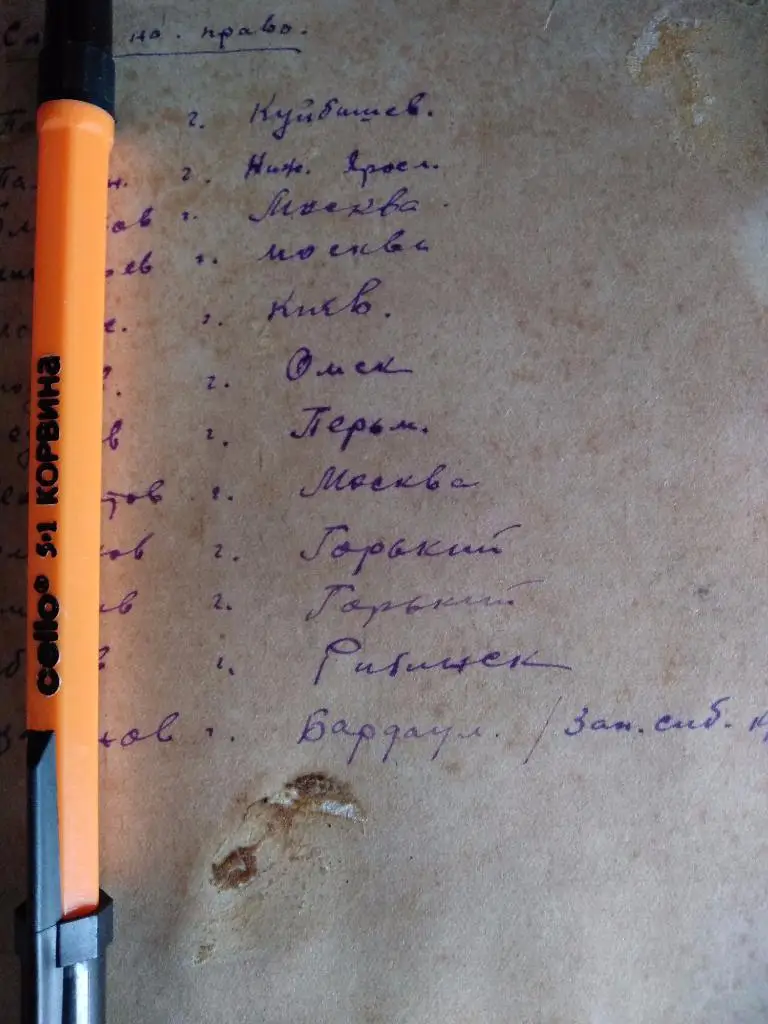 но. право.
г. Куйбишев.
н. г. Ниж. Яросл.
ов г. Москва.
ев г. москва
г. Киев.
г. Омск
в г. Перьм.
тов г. Москва
ков г. Горький
ив г. Горький
г. Рибинск
ков г. Бардаул. / Зап. сиб. кр
cello® 5·1 КОРВИНА